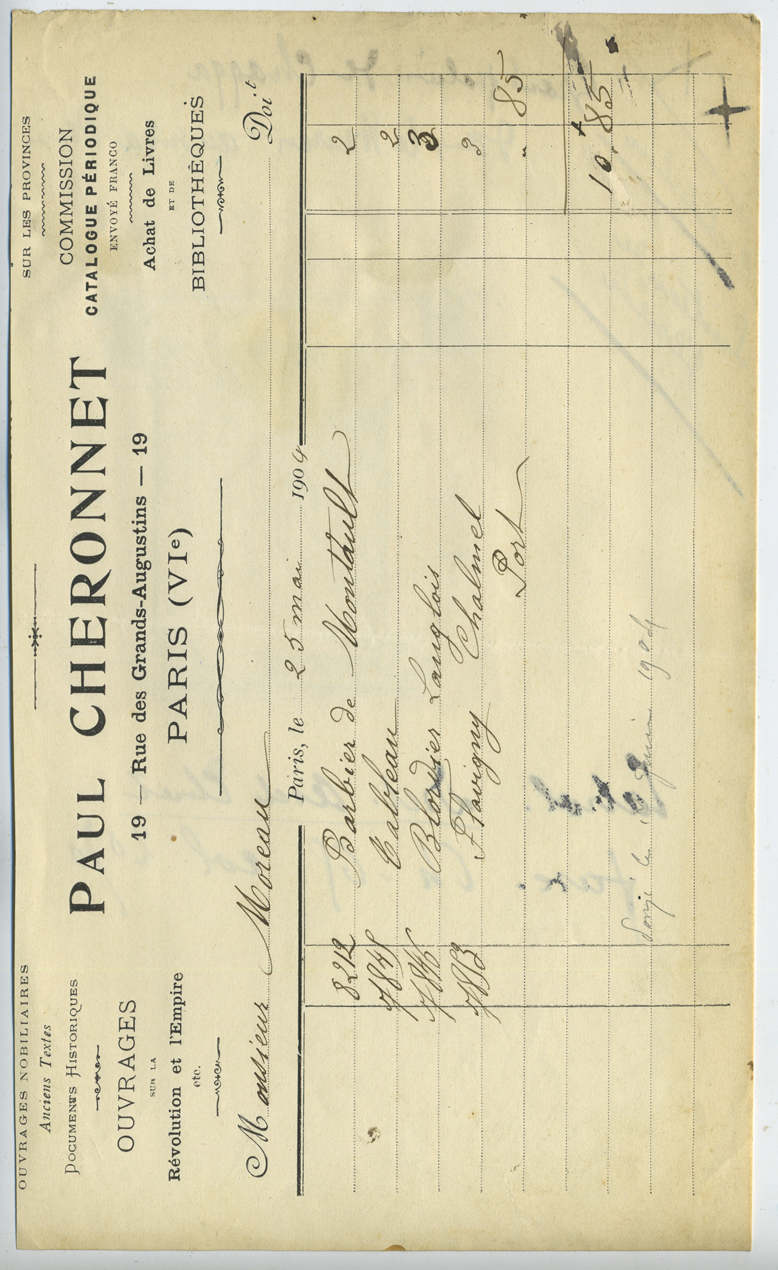 OUVRAGES NOBILIAIRES
Anciens Textes
DOCUMENTS HISTORIQUES
OUVRAGES
SUR LA
Révolution et l'Empire
etc.
PAUL CHERONNET
19 — Rue des Grands-Augustins — 19
PARIS (VIe)
SUR LES PROVINCES
COMMISSION
CATALOGUE PÉRIODIQUE
ENVOYÉ FRANCO
Achat de Livres
ET DE
BIBLIOTHÈQUES
Monsieur Moreau Doit
Paris, le 25 mai 1904
8212 Barbier de Montault 2
7848 Calleau 2
7846 Blordier Langlois 3
7853 Flavigny Chalmel 3
Port " 85
10 85
juin 1904